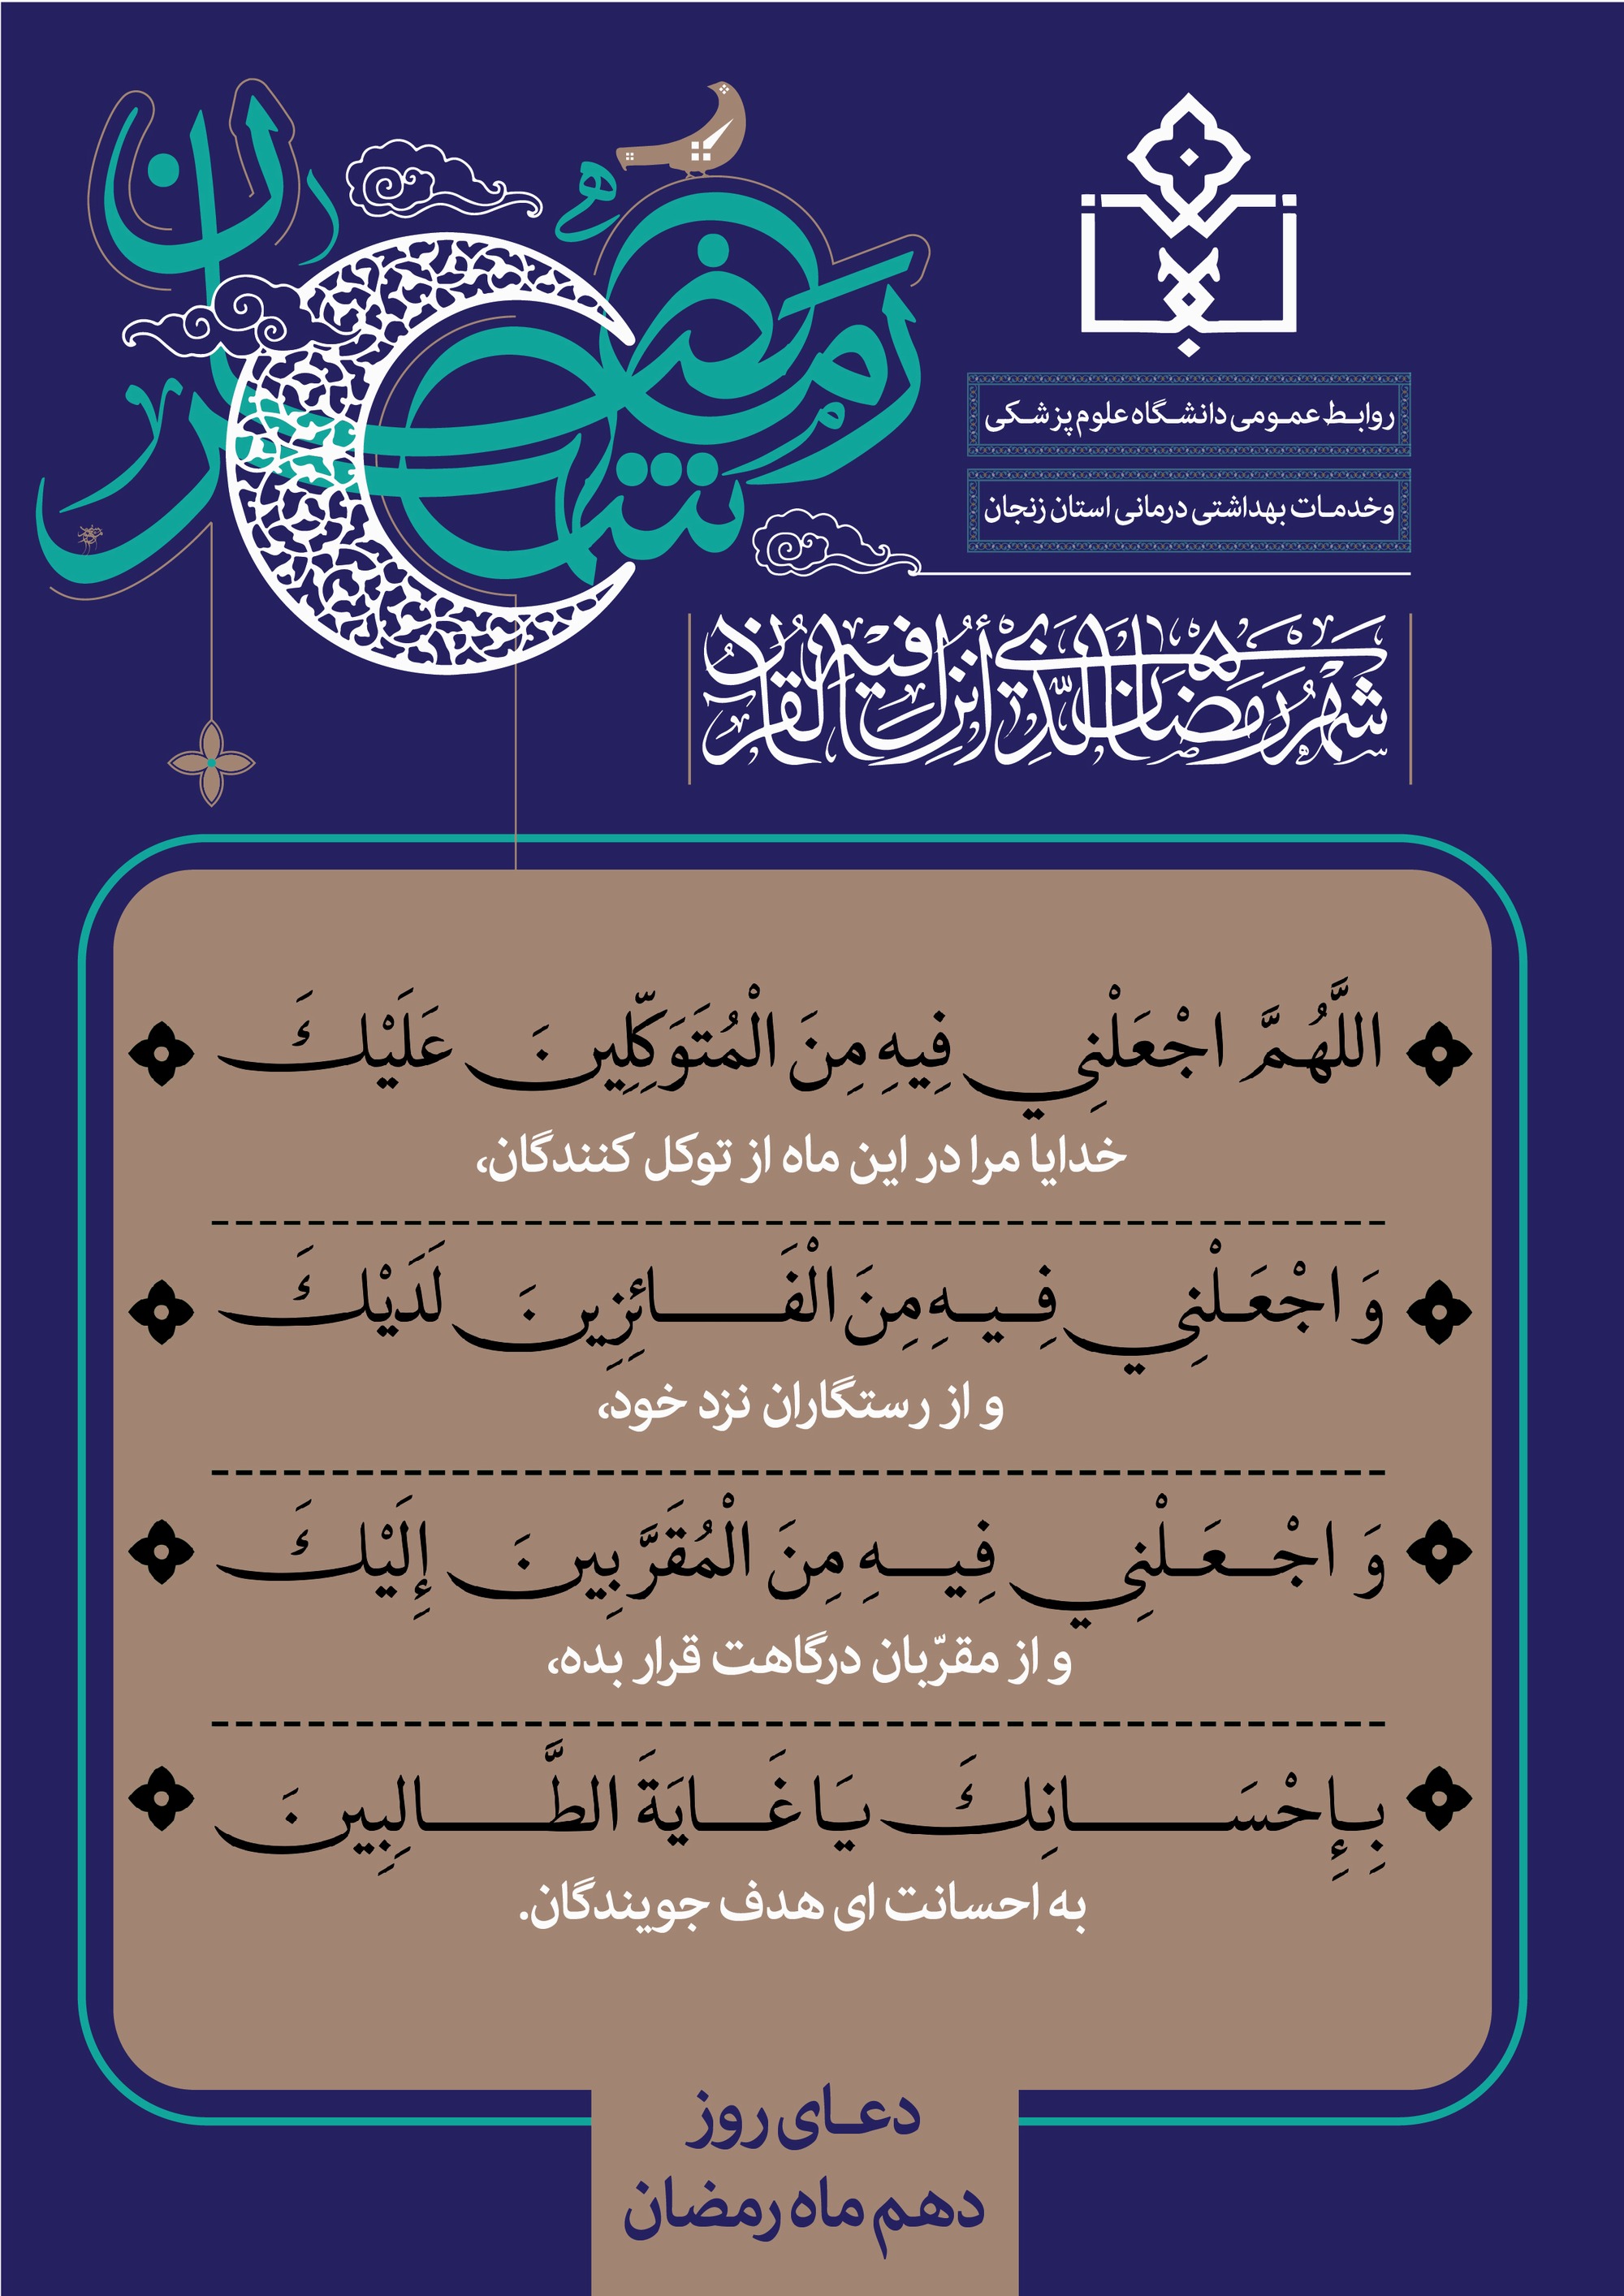 شهر رمضان
روابط عمومی دانشگاه علوم پزشکی
وخدمات بهداشتی درمانی استان زنجان
شهر رمضان الذي أنزل فيه القرآن
اللَّهُمَّ اجْعَلْنِي فِيهِ مِنَ الْمُتَوَكِّلِينَ عَلَيْكَ
خدایا مرا در این ماه از توکل کنندگان،
وَ اجْعَلْنِي فِيهِ مِنَ الْفَائِزِينَ لَدَيْكَ
و از رستگاران نزد خود،
وَ اجْعَلْنِي فِيهِ مِنَ الْمُقَرَّبِينَ إِلَيْكَ
و از مقرّبان درگاهت قرار بده،
بِإِحْسَانِكَ يَا غَايَةَ الطَّالِبِينَ
به احسانت ای هدف جویندگان.
دعای روز
دهم ماه رمضان